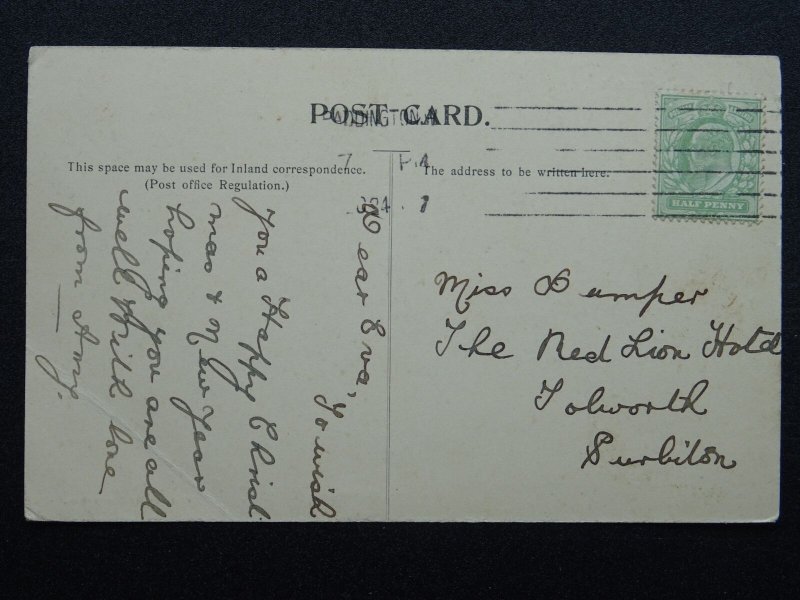 POST CARD.
PADDINGTON. W
7 PM
This space may be used for Inland correspondence.
(Post office Regulation.)
The address to be written here.
HALF PENNY
Dear Eva,
To wish
you a Happy Christ
mas & New Year
hoping you are all
well with love
from Amy.
Miss Bumper
The Red Lion Hotel
Tolworth
Surbiton